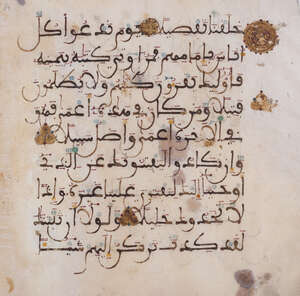 خلقنا تفضيلا يوم ندعوا كل
اناس بامامهم فمن اوتى كتبه بيمينه
فاوليك يقرءون كتبهم ولا يظلمون
فتيلا ومن كان فى هذه اعمى فهو
فى الاخرة اعمى واضل سبيلا
وان كادوا ليفتنونك عن الذى
اوحينا اليك لتفترى علينا غيره واذا
لاتخذوك خليلا ولولا ان ثبتنك
لقد كدت تركن اليهم شيئا